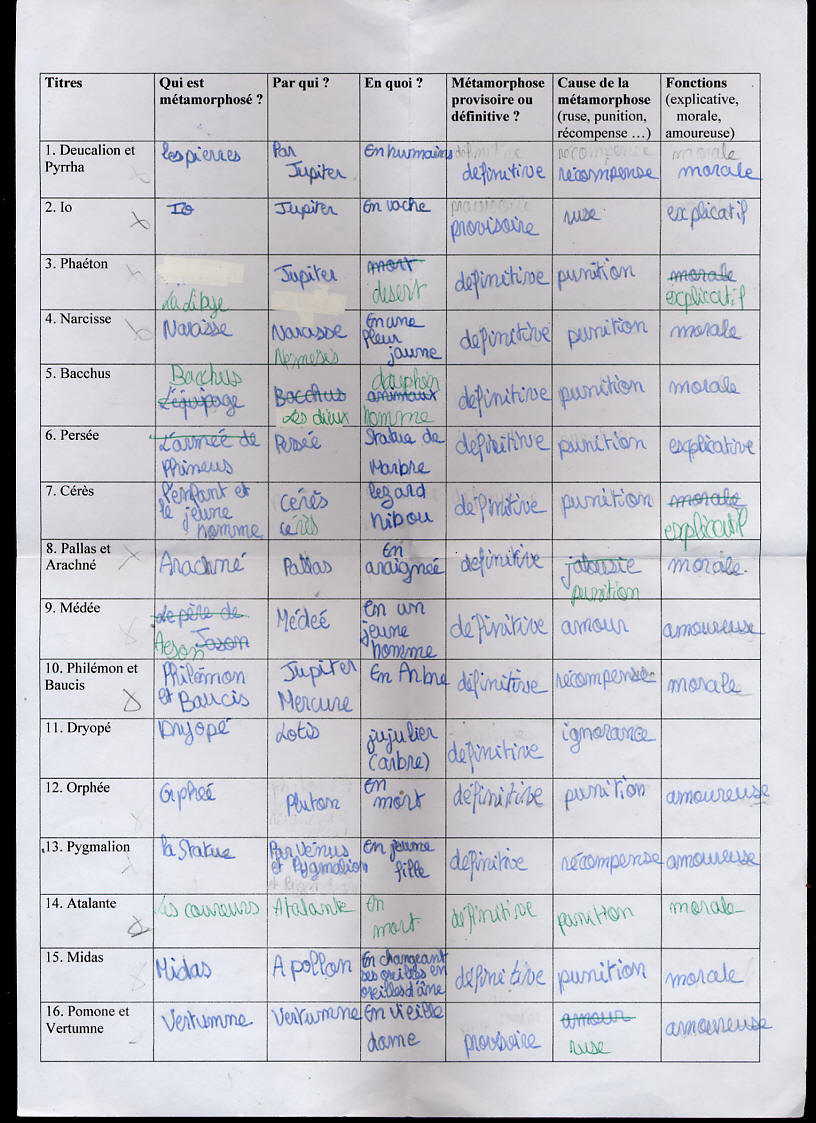 Titres
Qui est
métamorphosé ?
Par qui ?
En quoi ?
Métamorphose
provisoire ou
définitive ?
Cause de la
métamorphose
(ruse, punition,
récompense …)
Fonctions
(explicative,
morale,
amoureuse)
1. Deucalion et
Pyrrha
les pierres
Par
Jupiter
En humains
définitive
récompense
morale
2. Io
Io
Jupiter
En vache
provisoire
ruse
explicatif
3. Phaéton
La Libye
Jupiter
mort
desert
définitive
punition
morale
explicatif
4. Narcisse
Narcisse
Narcisse
Nemesis
En une
fleur
jaune
définitive
punition
morale
5. Bacchus
Bacchus
L'équipage
Bacchus
Les dieux
dauphin
animaux
homme
définitive
punition
morale
6. Persée
L'armée de
Phineus
Persée
Statue de
Marbre
définitive
punition
explicative
7. Cérès
l'enfant et
le jeune
homme
cérès
cérès
lezard
hibou
définitive
punition
morale
explicatif
8. Pallas et
Arachné
Arachné
Pallas
En
araignée
définitive
jalousie
punition
morale
9. Médée
Le père de
Aeson Jason
Médeé
En un
jeune
homme
définitive
amour
amoureuse
10. Philémon et
Baucis
Philémon
et Baucis
Jupiter
Mercure
En Arbre
définitive
récompense
morale
11. Dryopé
Dryopé
Lotis
jujulier
(arbre)
définitive
ignorance
12. Orphée
Orpheé
Pluton
En
mort
définitive
punition
amoureuse
13. Pygmalion
la Statue
Par Venus
et Pygmalion
En jeune
fille
définitive
récompense
amoureuse
14. Atalante
Les coureurs
Atalante
En
mort
définitive
punition
morale
15. Midas
Midas
Apollon
En changeant
ses oreilles en
oreilles d'âne
définitive
punition
morale
16. Pomone et
Vertumne
Vertumne
Vertumne
En vieille
dame
provisoire
amour
ruse
amoureuse